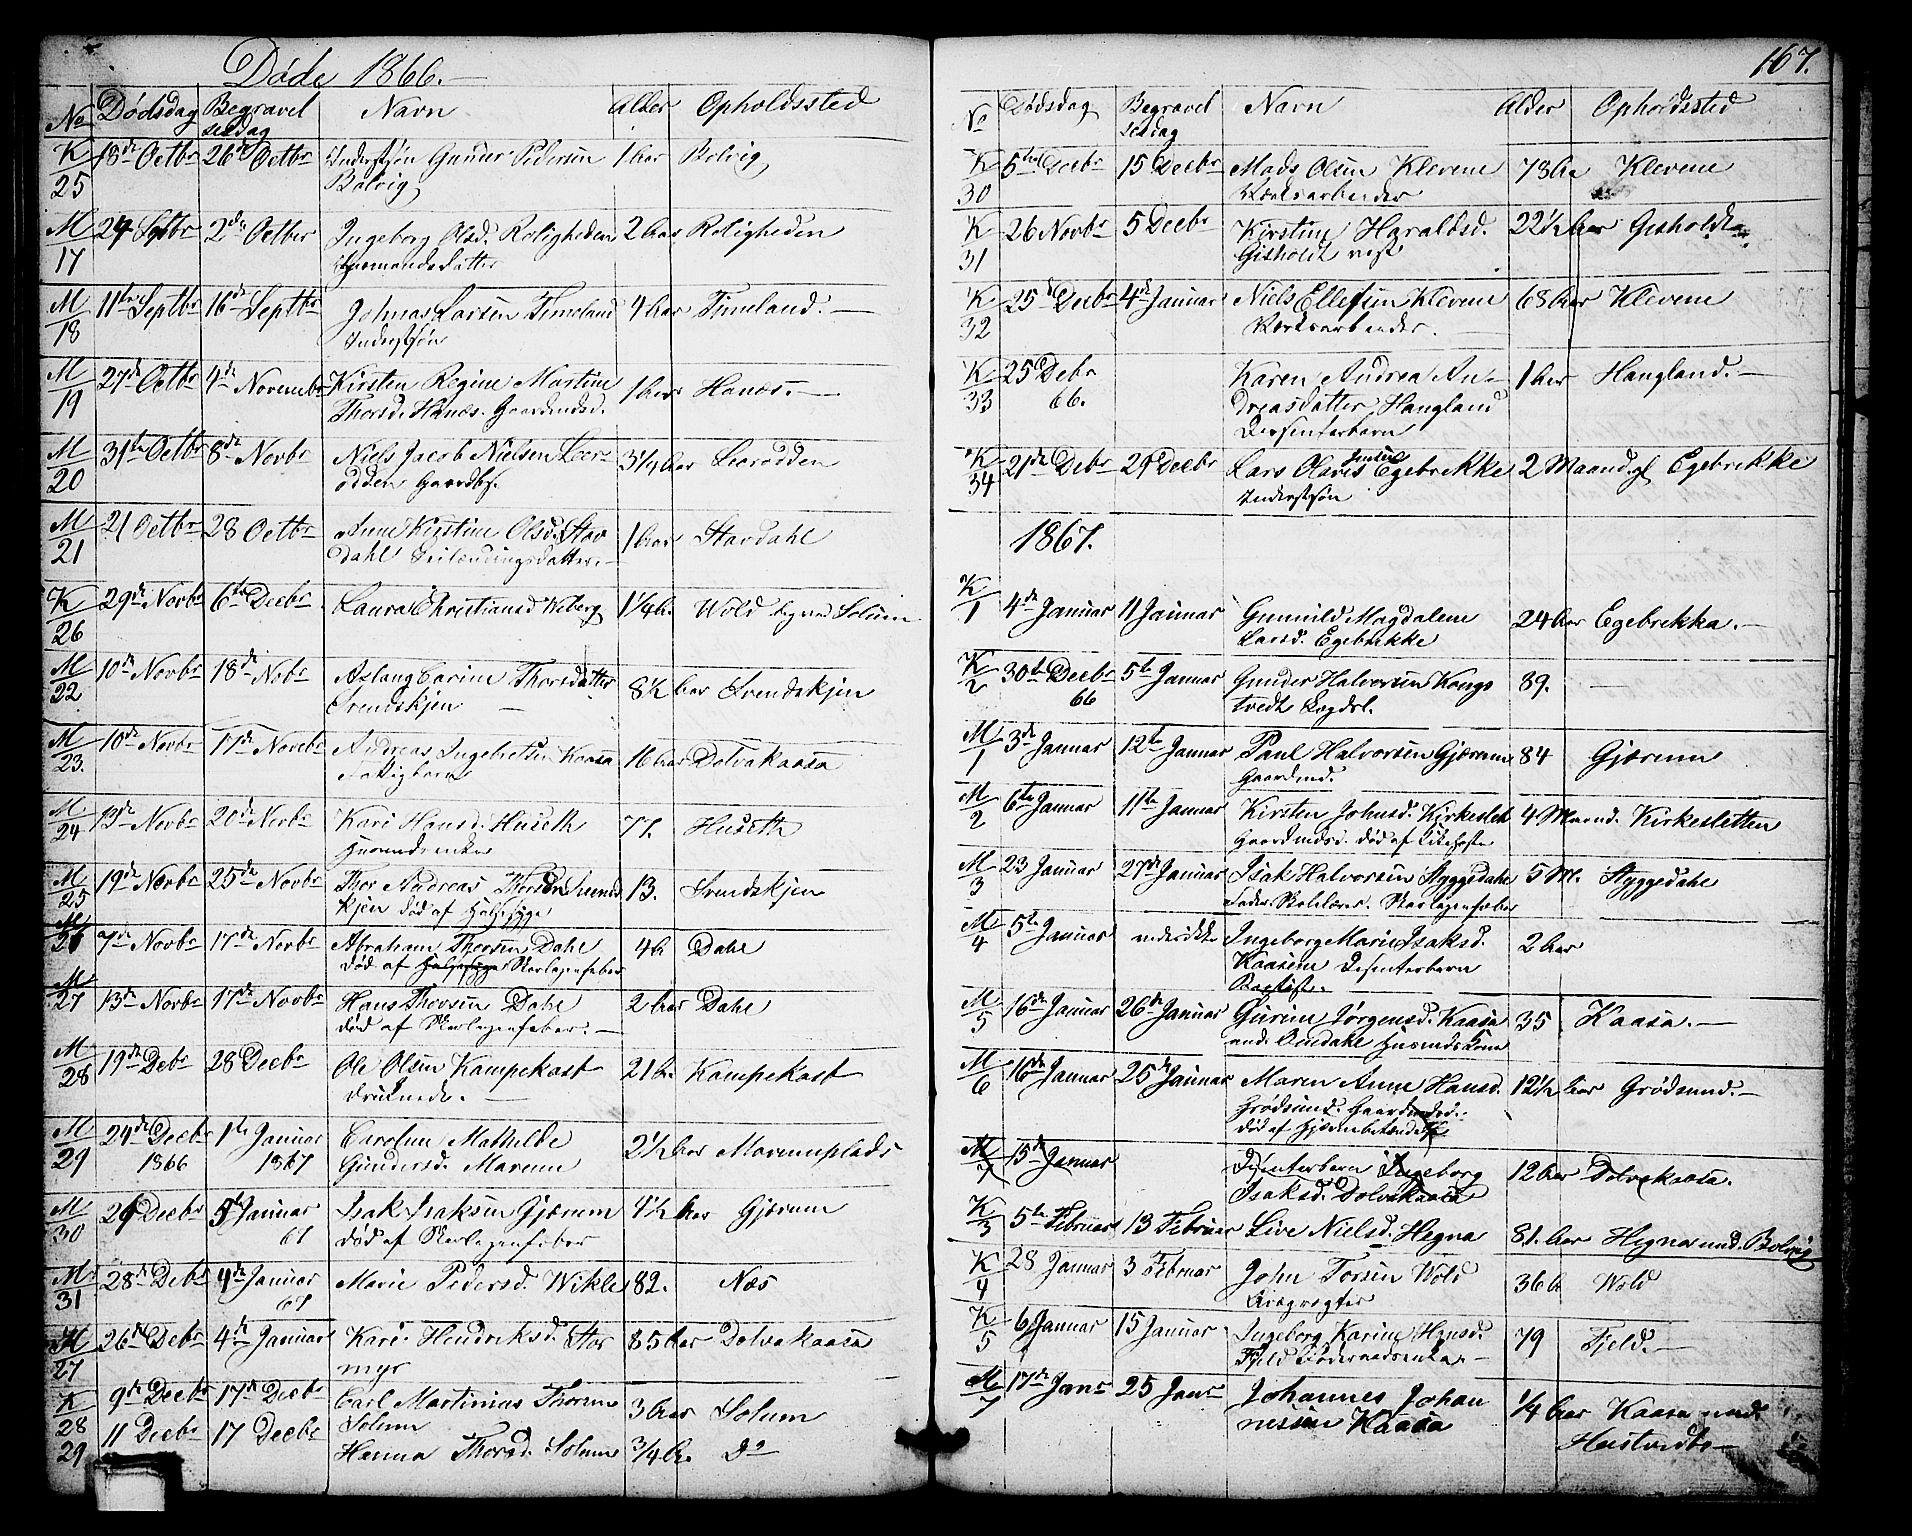 Døde 1866.—
No Dødsdag Begravelsesdag Navn Alder Opholdssted
K 25 18de Octbr 26de Octbr Inderstsøn Gunder Pedersen 1 Aar Bolvig
Bolvig
M 17 24 Septbr 2de Octber Ingeborg Olsd. Roligheden 2 Aar Roligheden
Huusmandsdatter
M 18 11te Septbr 16de Septbr Johnas Larsen Timeland 4 Aar Timeland.—
Inderstsøn
M 19 27de Octbr 4de Novembr Kirsten Regine Martine 1 Aar Hanæs.—
Thorsd. Hanæs. Gaardmdsd.
M 20 31te Octbr 8de Novbr Niels Jacob Nielsen Leer 3¼ Aar Leerodden
odden Gaardbs.
M 21 21 Octbr 28 Octbr Anne Kirstine Olsd. Stav 1 Aar Stavdahl
dahl Leilændingsdatter.—
K 26 29de Novbr 6te Decbr Laura Christiansd Weberg 1¼ A. Wold Solum
M 22 10de Novbr 18de Nobr Aslaug Carine Thorsdatter 8½ Aar Svendskjen
Svendskjen —
M 23. 10de Novbr 17de Novbr Andreas Ingebretsen Kaasa 16 Aar Dolvakaasa
Fattigbarn
M 24 13de Novbr 20de Novbr Kari Hansd. Huseth 77. Huseth
Huusmdsenke
M 25 19de Novbr 25de Novbr Thor Andreas Thorsen Svends 13. Svendskjen
kjen død af Halssyge
M 26 7de Novbr 17de Novbr Abraham Thorsen Dahl 4 A Dahl
død af Halssyge Skarlagensfeber
M 27 13de Novbr 17de Novbr Hans Thorsen Dahl 2 Aar Dahl
død af Skarlagensfeber.—
M 28 19de Debr 28 Decbr Ole Olsen Kampekast 21 A. Kampekast
druknede. —
M 29 24de Decbr 1te Januar Caroline Mathilde 2½ Aar Marumplads
1866 1867 Gundersd. Marum
M 30 26 Decbr 5 Januar Isak Isaksen Gjærum 4½ Aar Gjærum
67 død af Skarlagensfeber
M 31 28de Debr 4de Januar Marie Pedersd. Wikle 82. Næs
67
K 27 26de Debr 4de Januar Kari Hendriksd. Stor 85 Aar Dolvakaasa
myr
K 28 9de Decbr 17de Decbr Carl Martinius Thorsen 3 Aar Solum
Solum
29 11 Decbr 17 Decbr Hanna Thorsd. Solum ¾ A. Do
167.
No Dødsdag Begravelsesdag Navn Alder Opholdssted
K 30 5te Decbr 15 Decbr Mads Olsen Klevene 78 Aa Klevene
Værksarbeider
K 31 26 Novbr 5 Decbr Kirstine Haraldsd. 22½ Aar Gisholdt
Gisholdt vest
K 32 25d Decbr 4de Januar Niels Ellefsen Klevene 68 Aar Klevene
Værksarbeider.
K 33 25 Debr Karen Andrea An- 1 Aar Haugland.—
66. dreasdatter Haugland
Dissenterbarn
K 34 21de Debr 29 Decbr Lars Olavis Jensen Egebrekke 2 Maand. gl Egebrekke
Inderstsøn
1867.
K 1 4de Januar 11 Januar Gunnild Magdalene 24 Aar Egebrekka.—
Larsd. Egebrekke
K 2 30te Decbr 5te Januar Gunder Halvorsen Kongs 89. —
66 tvedt Lægdsl.
M 1 3de Januar 12te Januar Paul Halvorsen Gjærum 84 Gjærum
Gaardmd.
M 2 6te Januar 11te Januar Kirsten Johnsd. Kirkeslet 4 Maand. Kirkesletten
Gaardmdsd. død af Kikhoste
M 3 23 Januar 27de Januar Isak Halvorsen Styggedahl 5 M. Styggedahl
Fader: Skolelærer. Skarlagensfeber
M 4 5te Januar Ingeborg Marie Isaksd. 2 Aar
Kaasene Dissenterbarn
Baptist.
M 5 16de Januar 26de Januar Gurine Jørgensd. Kaasa 35 Kaasa.—
und. Omdahl Huusmdskone
M 6 16de Januar 25de Januar Maren Anne Hansd. 12½ Aar Grødsund.—
Grødsund. Gaardmdsd.
død af Hjernebetændelse
M 7 15de Januar Dissenterbarn Ingeborg 12 Aar Dolvakaasa.
Isaksd. Dolvakaasa
K 3 5te Februar 13 Februar Live Nielsd. Hegna 81. Aar Hegna und. Bolvig
K 4 28 Januar 3 Februar John Torsen Wold 36 A Wold
K 5 6 Januar 15 Januar Ingeborg Karine Hansd. 79 Fjeld.—
Fjeld
M 7 17de Janr 25 Janr Johannes Johan ¼ Aar Kaasa und.
nessen Kaasa Heistvedt—